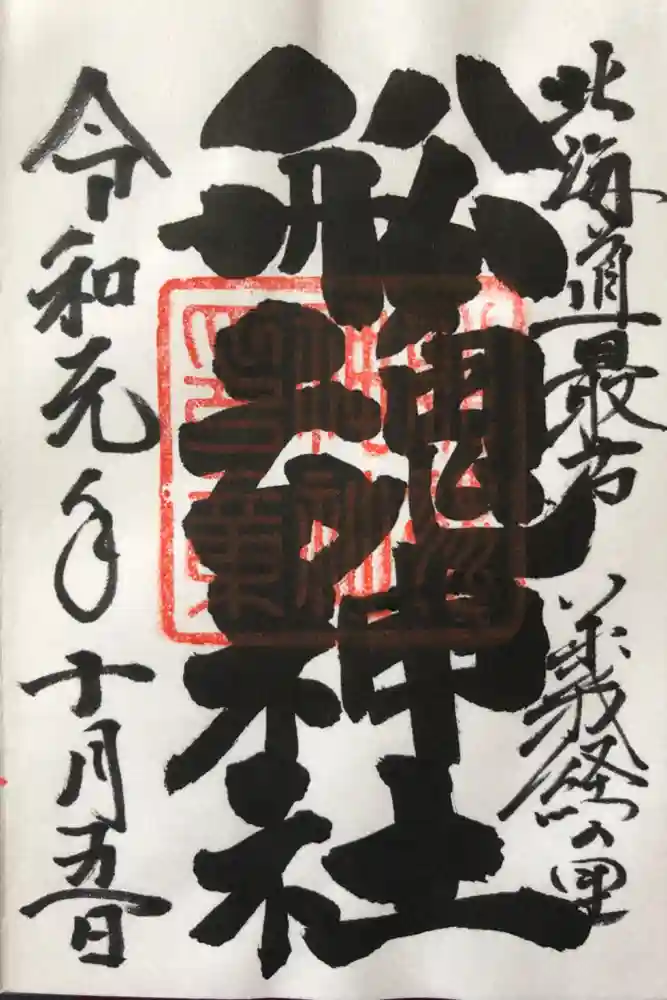 北海道最古 義経の里
舩魂神社
令和元年十月五日